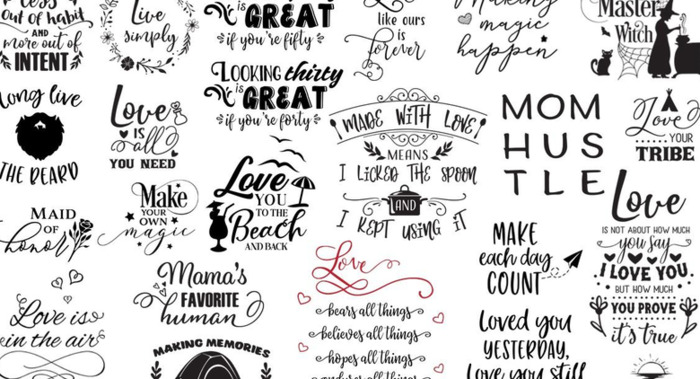 less
out of habit
AND
more out of
INTENT
Live
simply
is GREAT
if you're fifty
LOOKING thirty
is GREAT
if you're forty
like ours
is
forever
Making
magic
happen
Master
Witch
Long live
THE BEARD
Love
IS
all
YOU NEED
MADE WITH LOVE
MEANS
I LICKED THE SPOON
AND
I KEPT USING IT
MOM
HUS
TLE
Love
YOUR
TRIBE
MAID
OF
honor
Make
YOUR
OWN
magic
Love
YOU
TO THE
Beach
AND BACK
Love
IS NOT ABOUT HOW MUCH
you say
I LOVE YOU.
BUT HOW MUCH
YOU PROVE
it's true
MAKE
each day
COUNT
Love is
in the air
Mama's
FAVORITE
human
MAKING MEMORIES
Love
bears all things
believes all things
hopes all things
endures all things
Loved you
YESTERDAY,
love you still